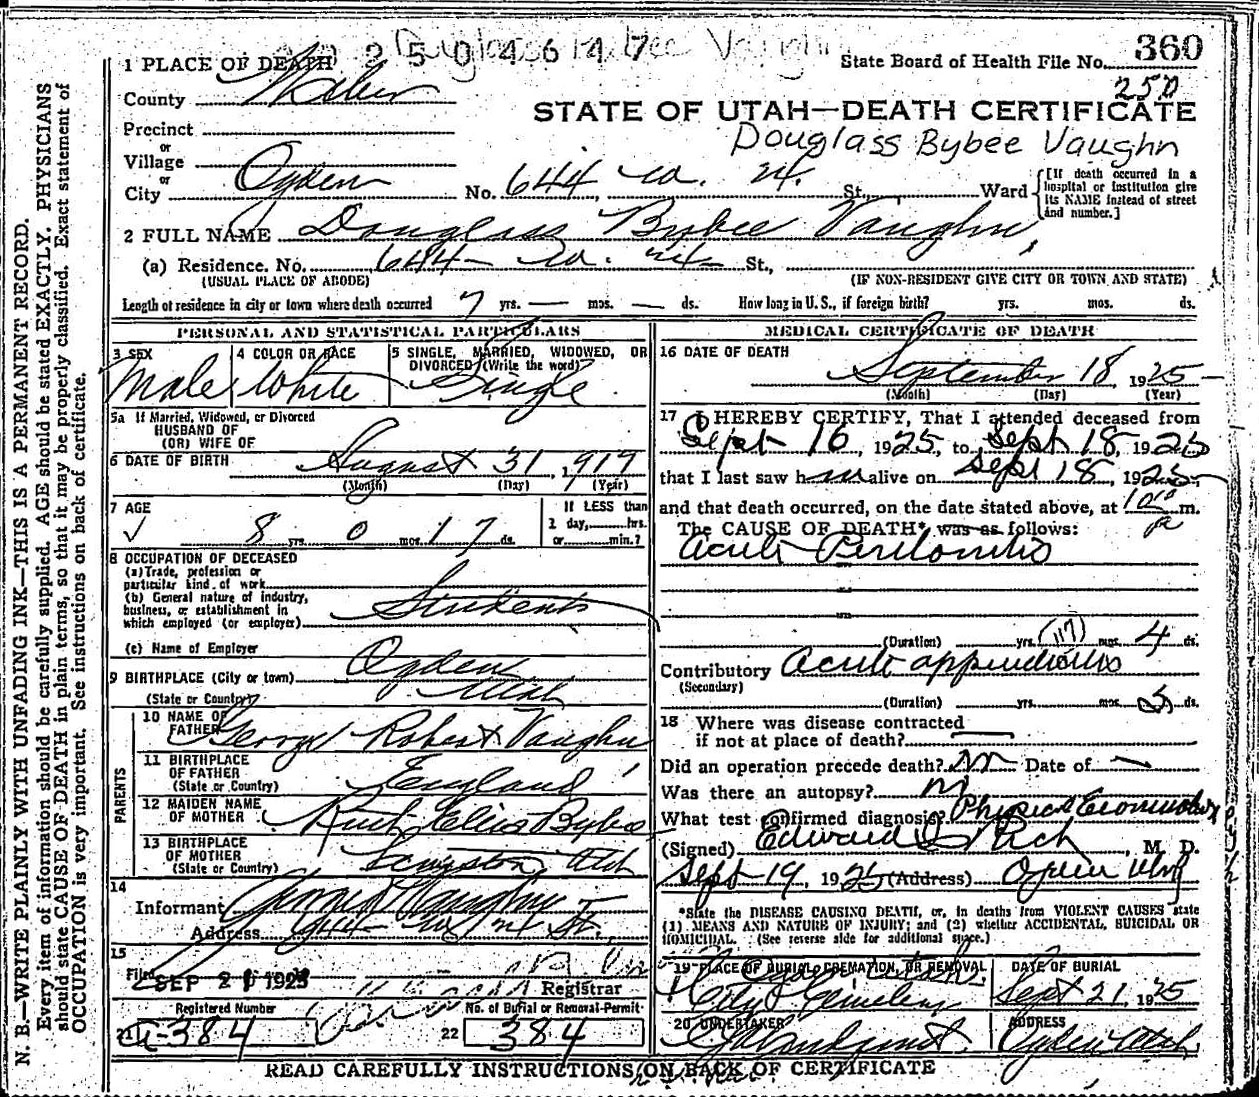 2504647 Douglass Bybee Vaughn
State Board of Health File No. 360
250
1 PLACE OF DEATH
County Weber
STATE OF UTAH—DEATH CERTIFICATE
Precinct
Douglass Bybee Vaughn
or
Village
or
City Ogden No. 644 St., Ward
[If death occurred in a hospital or institution give its NAME instead of street and number.]
2 FULL NAME Douglass Bybee Vaughn
(a) Residence. No. 644 St.,
(USUAL PLACE OF ABODE) (IF NON-RESIDENT GIVE CITY OR TOWN AND STATE)
Length of residence in city or town where death occurred 7 yrs. — mos. — ds. How long in U. S., if foreign birth? yrs. mos. ds.
PERSONAL AND STATISTICAL PARTICULARS
3 SEX Male
4 COLOR OR RACE White
5 SINGLE, MARRIED, WIDOWED, OR DIVORCED (Write the word) Single
5a If Married, Widowed, or Divorced
HUSBAND OF
(OR) WIFE OF
6 DATE OF BIRTH August 31, 1917
(Month) (Day) (Year)
7 AGE 8 yrs. 0 mos. 17 ds.
If LESS than
1 day, hrs.
or min.?
8 OCCUPATION OF DECEASED
(a) Trade, profession or
particular kind of work
(b) General nature of industry,
business, or establishment in
which employed (or employer) Student
(c) Name of Employer
9 BIRTHPLACE (City or town) Ogden
(State or Country) Utah
PARENTS
10 NAME OF FATHER George Robert Vaughn
11 BIRTHPLACE
OF FATHER
(State or Country) England
12 MAIDEN NAME
OF MOTHER Ruth Bybee
13 BIRTHPLACE
OF MOTHER
(State or Country) Utah
14
Informant George Vaughn
Address
15
Filed SEP 2 1925 Registrar
Registered Number No. of Burial or Removal-Permit
21 a-384 22 384
MEDICAL CERTIFICATE OF DEATH
16 DATE OF DEATH
September 18, 1925
(Month) (Day) (Year)
17 I HEREBY CERTIFY, That I attended deceased from
Sept 16, 1925, to Sept 18, 1925
that I last saw him alive on Sept 18, 1925,
and that death occurred, on the date stated above, at 10 p m.
The CAUSE OF DEATH* was as follows:
Acute Peritonitis
(Duration) yrs. (117) mos. 4 ds.
Contributory Acute appendicitis
(Secondary)
(Duration) yrs. mos. 5 ds.
18 Where was disease contracted
if not at place of death?
Did an operation precede death? no Date of —
Was there an autopsy? no
What test confirmed diagnosis? Physical Examination
(Signed) Edward I Rich, M. D.
Sept 19, 1925 (Address) Ogden Utah
*State the DISEASE CAUSING DEATH, or, in deaths from VIOLENT CAUSES state
(1) MEANS AND NATURE OF INJURY; and (2) whether ACCIDENTAL, SUICIDAL OR
HOMICIDAL. (See reverse side for additional space.)
19 PLACE OF BURIAL, CREMATION, OR REMOVAL
Ogden Utah
City Cemetery
DATE OF BURIAL
Sept 21, 1925
20 UNDERTAKER
ADDRESS
Ogden Utah
READ CAREFULLY INSTRUCTIONS ON BACK OF CERTIFICATE
N. B.—WRITE PLAINLY WITH UNFADING INK—THIS IS A PERMANENT RECORD.
Every item of information should be carefully supplied. AGE should be stated EXACTLY. PHYSICIANS
should state CAUSE OF DEATH in plain terms, so that it may be properly classified. Exact statement of
OCCUPATION is very important. See instructions on back of certificate.